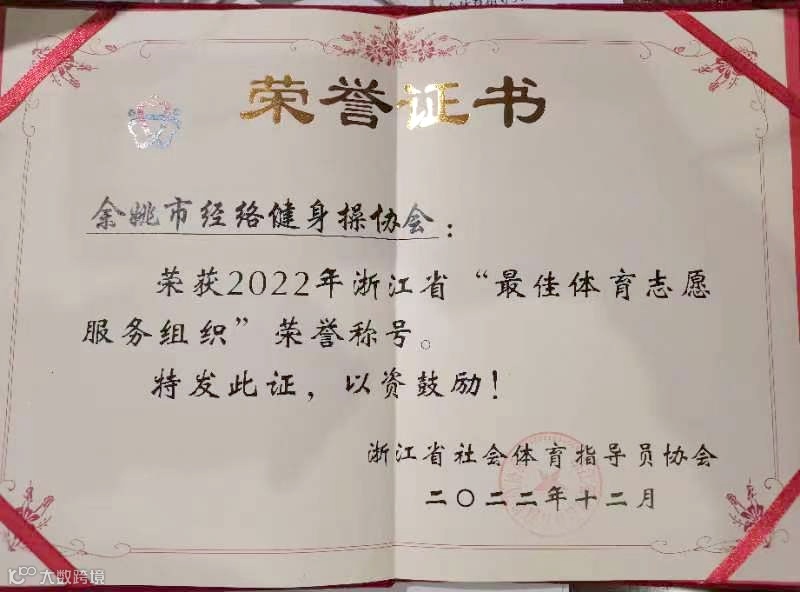 荣誉证书
余姚市经络健身操协会：
荣获2022年浙江省“最佳体育志愿
服务组织”荣誉称号。
特发此证，以资鼓励！
浙江省社会体育指导员协会
二〇二二年十二月
大数跨境